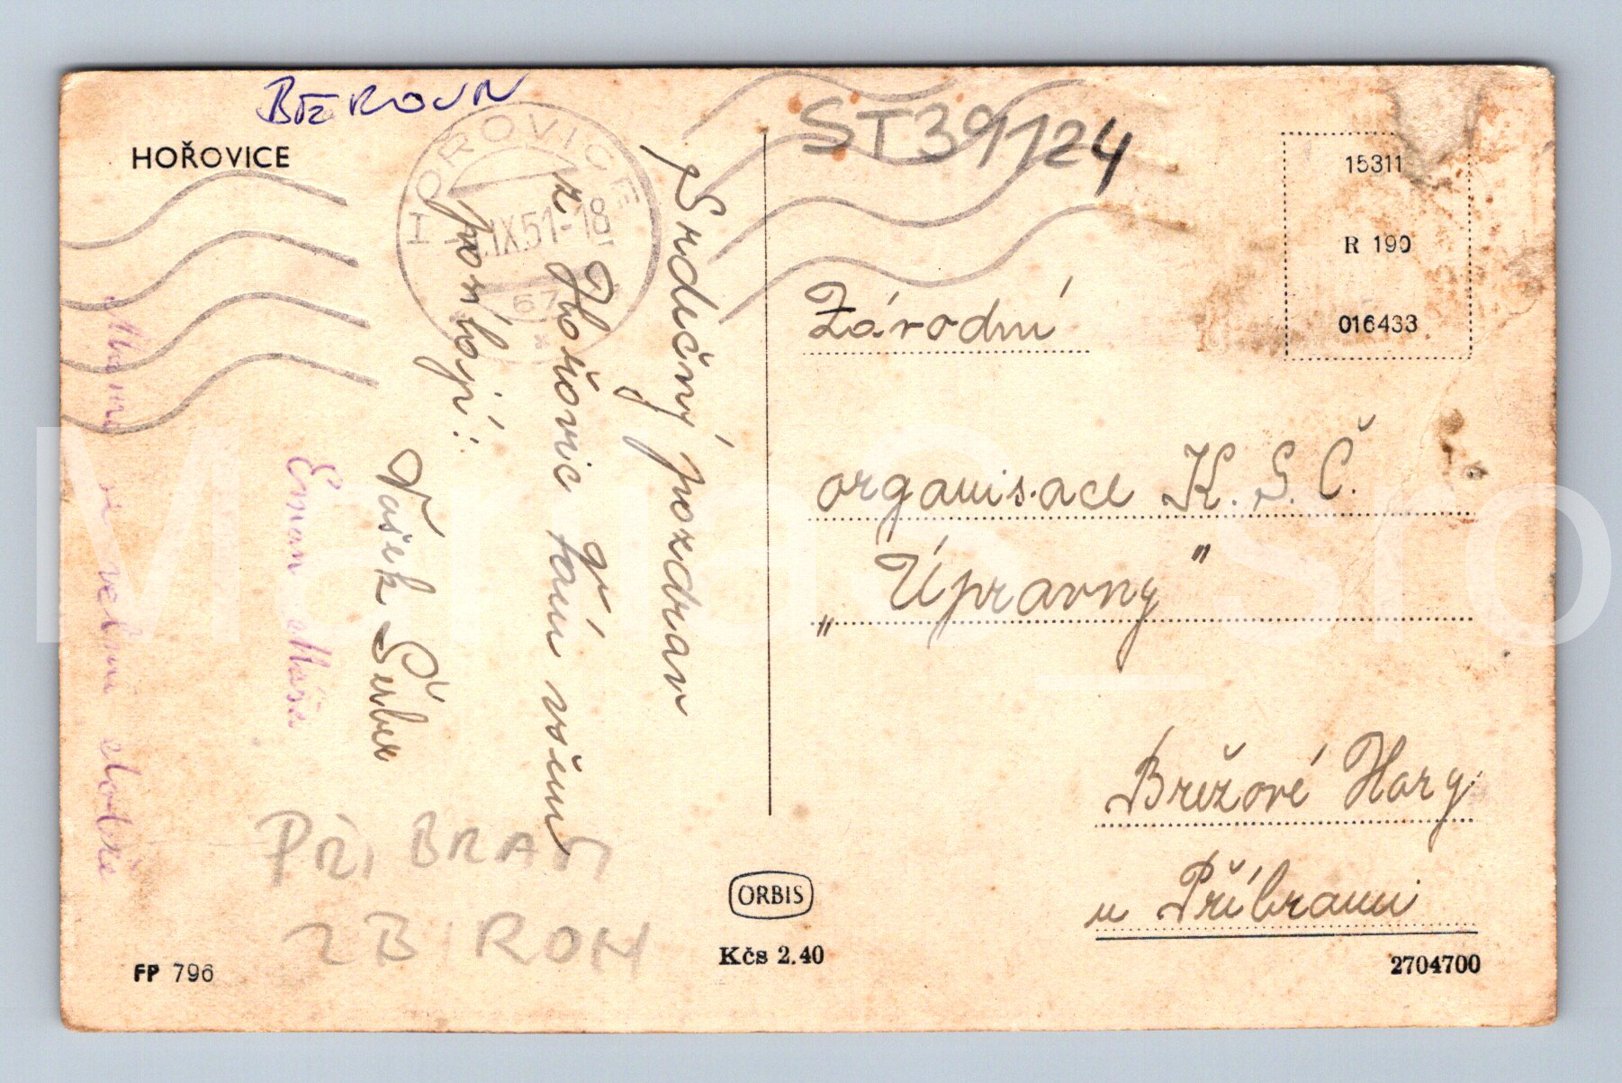 BEROUN
HOŘOVICE
HOŘOVICE
IX.51-18
67
ST39124
15311
R 190
016433
Srdečný pozdrav
z Hořovic
všem
posílají:
Vašek
Eman
velmi dobře
Závodní
organisace K.S.Č.
"Úpravny"
Březové Hory
u Příbrami
PŘIBRAM
ZBIROH
ORBIS
Kčs 2.40
FP 796
2704700